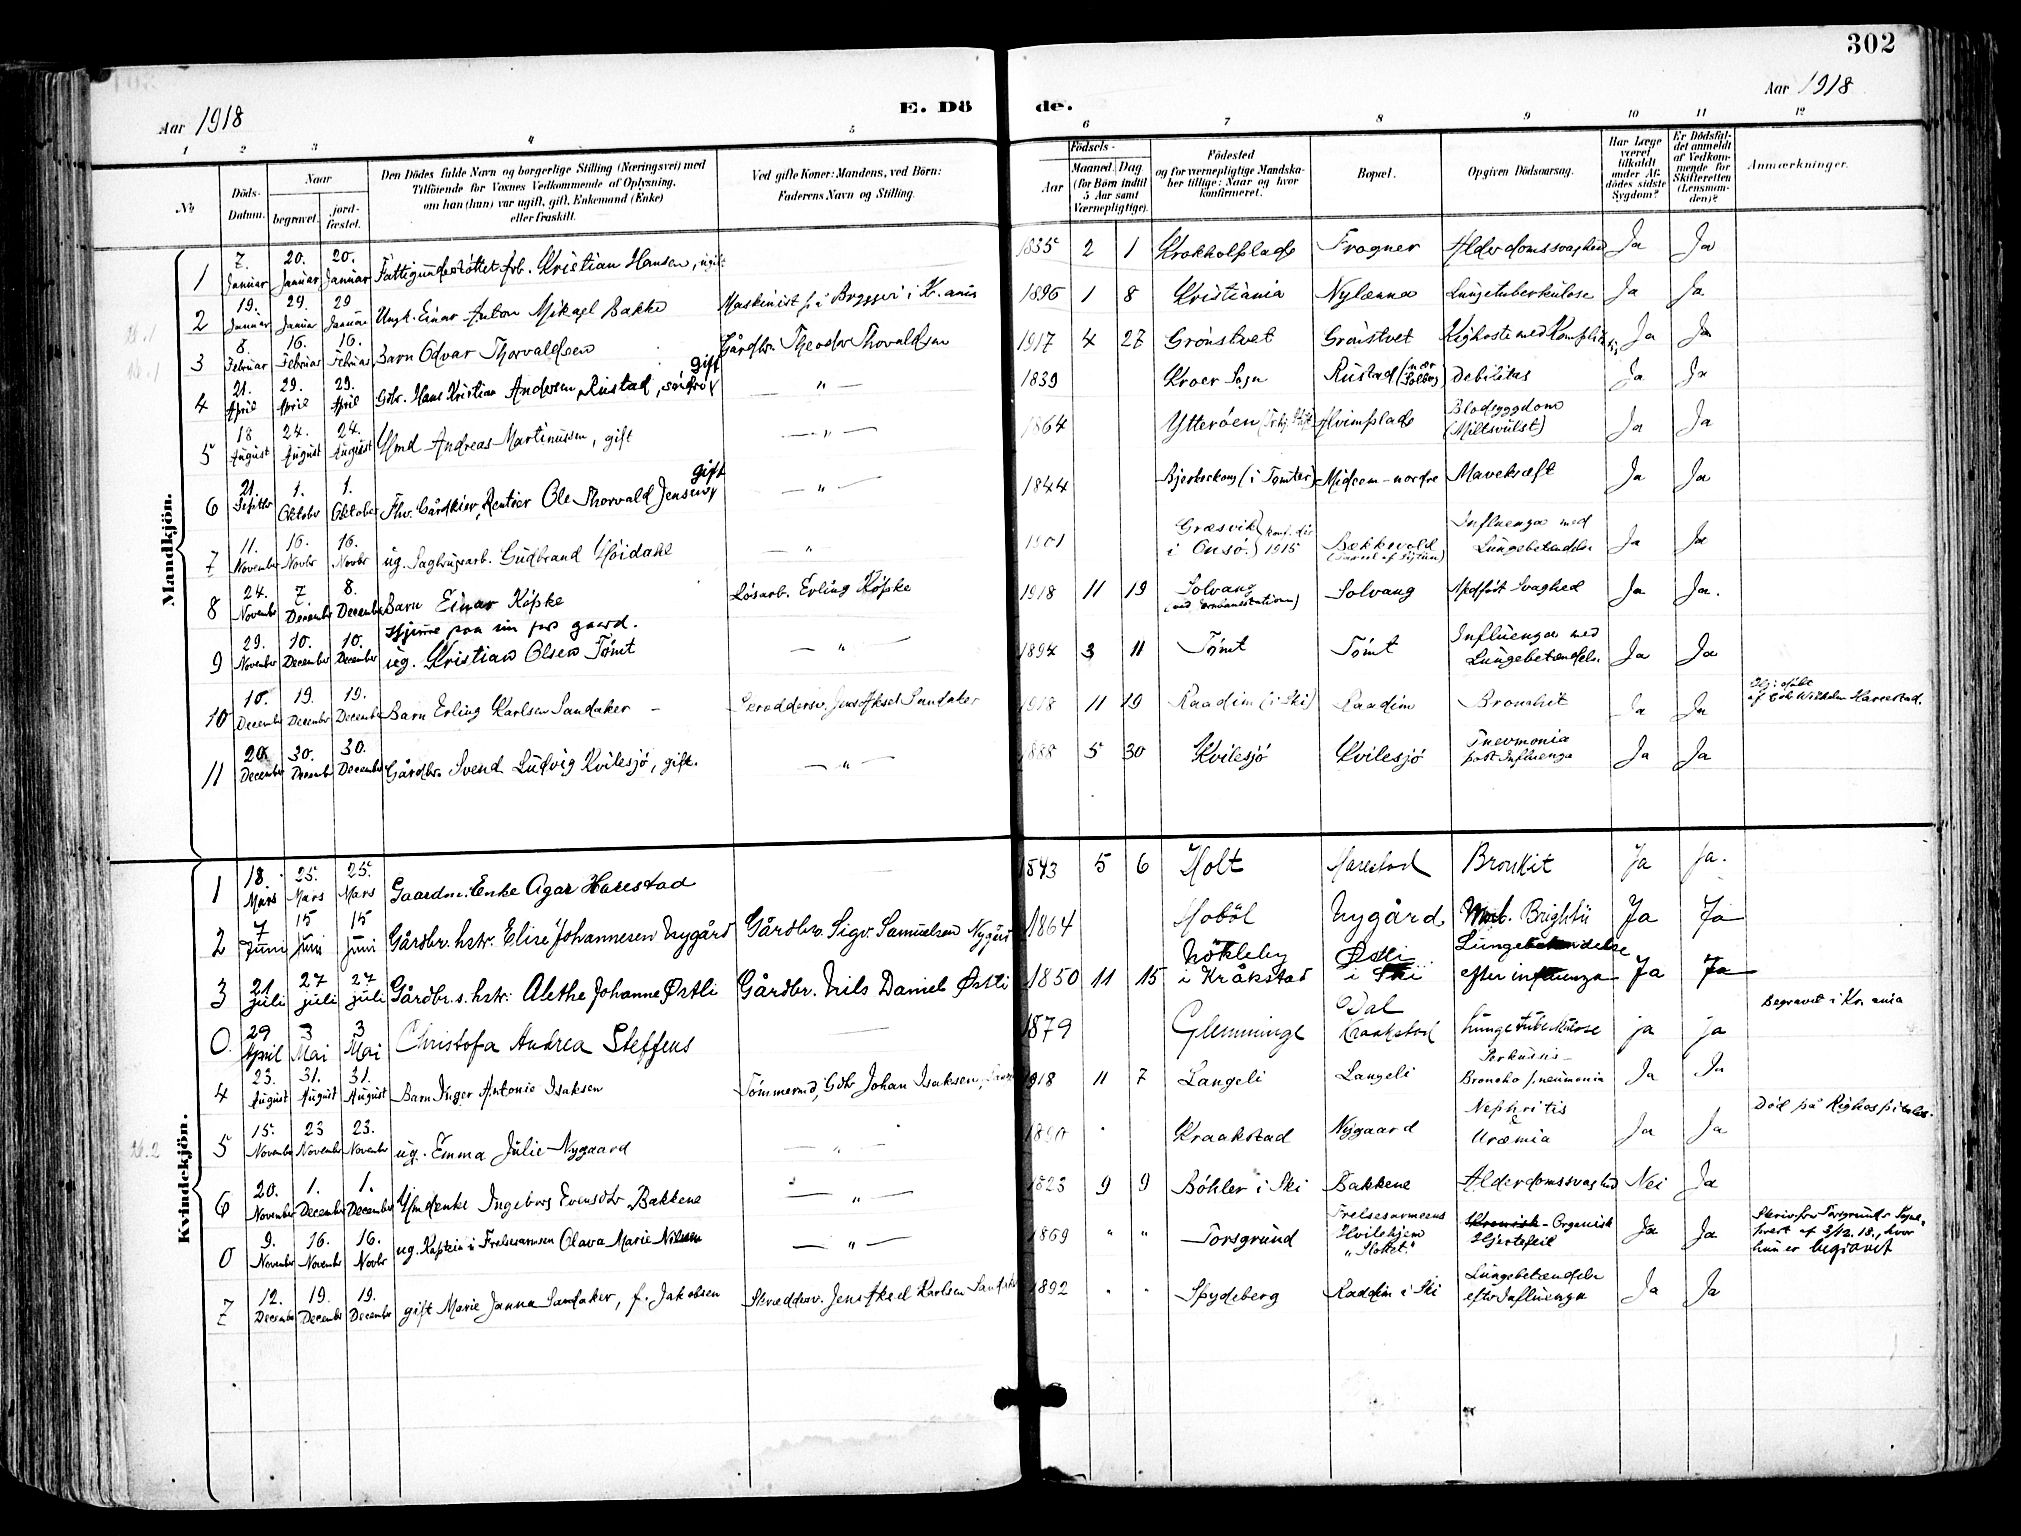 302
Aar 1918
E. Dö de.
Aar 1918
1 2 3 4 5 6 7 8 9 10 11 12
No
Döds-Datum.
Naar
begravet.
jord-fæstet.
Den Dödes fulde Navn og borgerlige Stilling (Næringsvei) med
Tilföiende for Voxnes Vedkommende af Oplysning,
om han (hun) var ugift, gift, Enkemand (Enke)
eller fraskilt.
Ved gifte Koner: Mandens, ved Börn:
Faderens Navn og Stilling.
Födsels-
Aar
Maaned. Dag.
(for Börn indtil
5 Aar samt
Værnepligtige).
Födested
og for værnepligtige Mandska-
ber tillige: Naar og hvor
konfirmeret.
Bopæl.
Opgiven Dödsaarsag.
Har Læge
været
tilkaldt
under Af-
dödes sidste
Sygdom?
Er Dödsfal-
det anmeldt
af Vedkom-
mende for
Skifteretten
(Lensman-
den)?
Anmærkninger.
Mandkjön.
1 7. Januar 20. Januar 20. Januar Fattigunderstöttet arb. Kristian Hansen, ugift 1835 2 1 Krokholplads Frogner Alderdomssvaghed Ja Ja
2 19. Januar 29. Januar 29 Januar Ungk. Einar Anton Mikael Bakke Maskinist på Bryggeri i Kr.ania 1896 1 8 Kristiania Nylænna Lungetuberkulose Ja Ja
3 8. Februar 16. Februar 16. Februar Barn Odvar Thorvaldsen Gårdbr. Theodor Thorvaldsen 1917 4 27 Grönstvet Grönstvet Kighoste med Ja Ja
4 21. April 29. April 29. April Gbr. Hans Kristian Andersen Rustad, gift — " — 1839 Kroer Sogn Rustad (nær Solberg) Debilitas Ja Ja
5 18 August 24. August 24. August Hmd Andreas Martinussen, gift — " — 1864 Ytteröen Hvimplads Blodsygdom (Miltsvulst) Ja Ja
6 21. Septbr 1. Oktobr 1. Oktober Fhv. Gårdeier, Rentier Ole Thorvald Jensen gift — " — 1844 (i Tomter) Midsem - nordre Mavekræft Ja Ja
7 11. November 16. Novbr 16. Novbr ug. Sagbrugsarb. Gudbrand Höidahl — " 1901 Græsvik i Onsö. 1915 Bækkevold Influenga med Lungebetændelse Ja Ja
8 24. Novembr 7. December 8. December Barn Einar Köpke Lösarb. Erling Köpke 1918 11 19 Solvang Solvang Medfödt Svaghed Ja Ja.
Hjemme paa sin fars gaard.
9 29. November 10. December 10. December ug. Kristian Olsen Tömt — " — 1894 3 11 Tömt Tömt Influenga med Lungebetændelse Ja Ja
10 10. December 19. December 19. December Barn Erling Karlsen Sandaker Skræddersv. Jens Aksel Sandaker 1918 11 19 Raadim (i Ski) Raadim Bronchit Ja Ja
11 20. December 30. Decembr 30. December Gårdbr. Svend Ludvig Kvilesjö, gift. — " — 1888 5 30 Kvilesjö Kvilesjö Pnevmonia post Influenga Ja Ja
Kvindekjön.
1 18. Mars 25. Mars 25. Mars Gaardm. Enke Agar Harestad 1843 5 6 Holt Harestad Bronkit Ja Ja.
2 7 Juni 15 Juni 15 Juni Gårdbr. hstr. Elise Johannesen Nygård Gårdbr. Sigv. Samuelsen Nygård 1864 Hoböl Nygård. Morb. Brightii Ja Ja
3 21. Juli 27 Juli 27 Juli Gårdbr.s. hstr. Alethe Johanne Østli Gårdbr. Nils Daniel Østli 1850 11 15 Nökleby i Kråkstad Østli i Ski Lungebetændelse efter influenza Ja Ja
0. 29 April 3 Mai 3 Mai Christofa Andrea Steffens 1879 Glemminge Dal Kraakstad Lungetuberkulose ja ja Begravet i Kr.ania
4 23. August 31. August 31. August Barn Inger Antonie Isaksen Tömmermd, Gbr Johan Isaksen, 1918 11 7 Langeli Langeli Broncho pneumonia Ja Ja
5 15. November 23 November 23. November ug. Emma Julie Nygaard — " — 1890 Kraakstad Nygaard Nephritis & Uræmia Ja Ja Död på Righospitalet.
6 20. November 1. December 1. December Hmdenke Ingeborg Evensdtr Bakkene — " — 1823 9 9 Böhler i Ski Bakkene Alderdomssvaghed Nei Ja
0 9. November 16. Novembr 16. Novbr ug. Kaptein i Frelsesarmeen Olava Marie Nilssen — " — 1869 " " Porsgrund Frelsesarmeens Hvilehjem "Slottet." Organisk Hjertefeil Ja Ja Skriv. fra Porsgrunds Sogne- af 3/12. 18., hvor hun er begravet
7 12. Decembr 19. Decembr 19. December gift Marie Janna Sandaker, f. Jakobsen Skræddersv. Jens Aksel Karlsen Sandaker 1892 Spydeberg Raadim i Ski Lungebetændelse efter Influenga Ja Ja